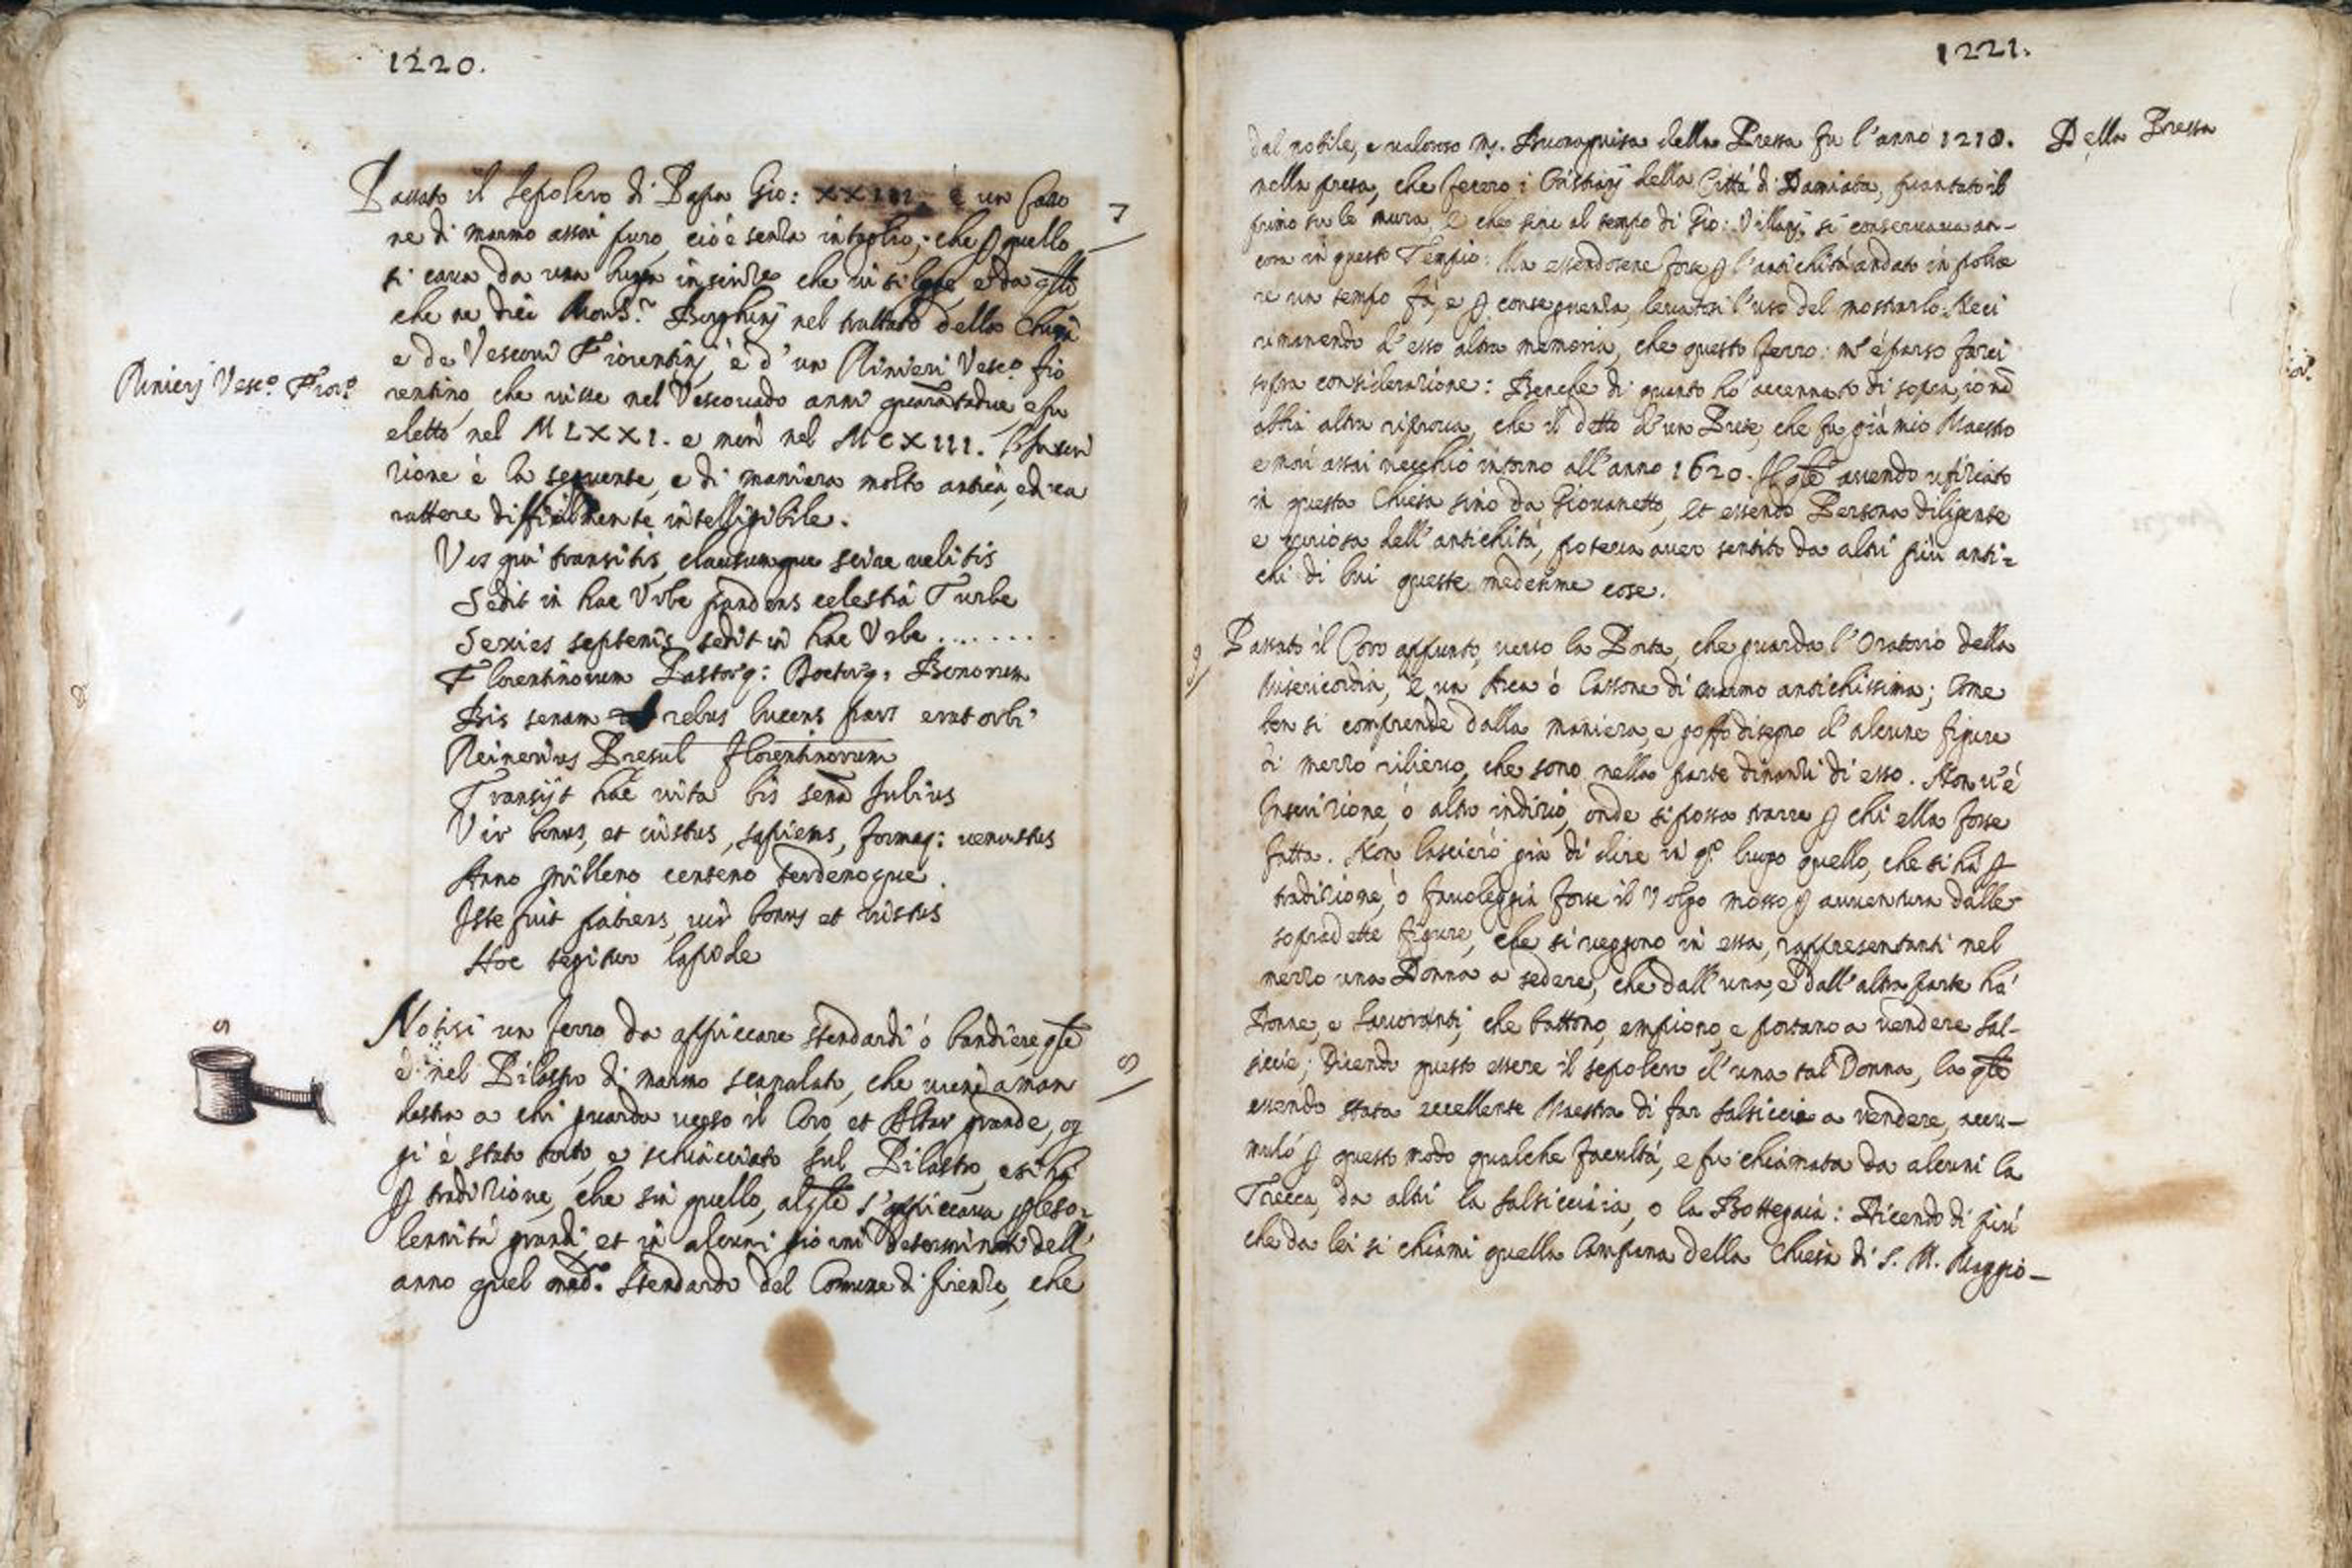 1220.
Passato il Sepolcro di Papa Gio: XXIII. è un Casso
7
ne di marmo assai puro, cioè senza intaglio, che quello
si cava da una in che vi si legge e da qlle
che ne dice Mons.r Borghinj nel trattato della Chiesa
e de Vescovi Fiorentinj, è d'un Rinieri Vesc.o fio
Rinierj Vesc.o Fior.o
rentino, che visse nel Vescovado anni quarātadue, e fu
eletto nel MLXXI. e morì nel MCXIII. L'Inscri
zione è la seguente, e di maniera molto antica, ed ca
rattere difficilmente intelligibile.
Vos qui transitis, clausumque scire velitis
Sedit in hac Urbe pandens celestia Turbe
Sexies septenis sedit in hac Urbe ........
Florentinorum Pastorq: Doctorq: Bonorum
Bis senam rebus lucens pars erat orbi
Reinerius Presul Florentinorum
Transijt hāc vita bis senā Iulius
Vir bonus, et iustus, sapiens, formaq: venustus
Anno milleno centeno terdenoque.
Iste fuit patiens, vir bonus et iustus
Hoc tegitur lapide
Notisi un ferro da appiccare stendardi ò bandiere, qle
8
8
è nel Pilastro di marmo scanalato, che viene a man
destra a chi guarda verso il Coro, et Altar grande, og
gi è stato torto, e schiacciato sul Pilastro, e si hà
p tradizione, che sia quello, al qle s'appiccava p le so-
lennità grandi, et in alcuni giorni determinati dell'
anno quel med.o Stendardo del Comune di firenze, che
1221.
dal nobile, e valoroso Ms. Buonaguisa della Pressa fu l'anno 1218.
Della Pressa
nella presa, che fecero i Cristianj della Città di Damiata, piantato il
primo su le mura, e che sino al tempo di Gio: Villanj, si conservava an-
cora in questo Tempio: Ma essendosene forse p l'antichità andato in polve
re un tempo fà, e p conseguenza, levatosi l'uso del mostrarlo. Neci
rimanendo d'esso altra memoria, che questo ferro: m'è parso farci
sopra considerazione: Benche di quanto hò accennato di sopra, io nō
abbia altra riprova, che il detto d'un Prete, che fu già mio Maestro
e morì assai vecchio intorno all'anno 1620. Il qle avendo ufiziato
in questa Chiesa sino da Giovanetto, et essendo Persona diligente
e curiosa dell'antichità, poteva aver sentito da altri più anti=
chi di lui queste medesime cose.
9 Passato il Coro appunto, verso la Porta, che guarda l'Oratorio della
Misericordia, è un Arca ò Cassone di marmo antichissima; come
ben si comprende dalla maniera, e goffo disegno d'alcune figure
di mezzo rilievo, che sono nella parte dinanzi di esso. Non v'è
Inscrizione, ò altro indizio, onde si possa trarre p chi ella fosse
fatta. Non lascierò già di dire in qo luogo quello, che si hà p
tradizione, ò favoleggia forse il Volgo mosso p avventura dalle
sopradette figure, che si veggono in essa, rappresentanti nel
mezzo una Donna a sedere, che dall'una, e dall'altra parte hà
Donne, e Lavoranti, che battono, empiono, e portano a vendere sal-
siccie; Dicendo questo essere il sepolcro d'una tal Donna, la qle
essendo stata eccellente Maestra di far salsiccie a vendere, accu-
mulò p questo modo qualche facultà, e fu chiamata da alcuni la
Trecca, da altri la Salsicciaia, o la Bottegaia: Dicendo di più
che da lei si chiami quella Campana della Chiesa di S. M. Maggio-